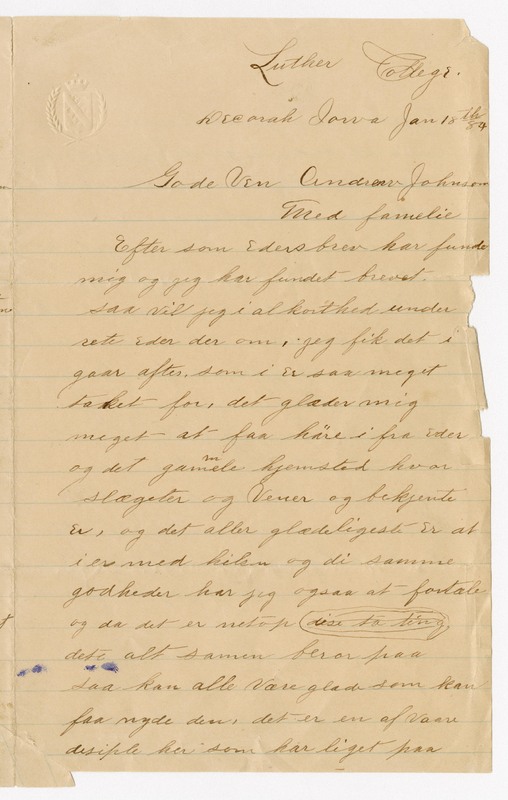 Luther College.
Decorah Iowa Jan 18th 84
Gode Ven Andrew Johnson
Med familie
Efter som Eders brev har funde
mig og jeg har fundet brevet.
saa vil jeg i al korthed under
rete Eder der om, jeg fik det i
gaar aftes. som i Er saa meget
taket for, det glæder mig
meget at faa häre i fra Eder
og det gammele hjemsted hvor
slægeter og Vener og bekjente
Er, og det aller glædeligeste Er at
i er med helsen og di samme
godheder har jeg ogsaa at fortæle
og da det er netop dise to ting
dets alt samen beror paa
saa kan alle Være glade som kan
faa nyde den, det er en af Vaare
disiple her som har liget paa